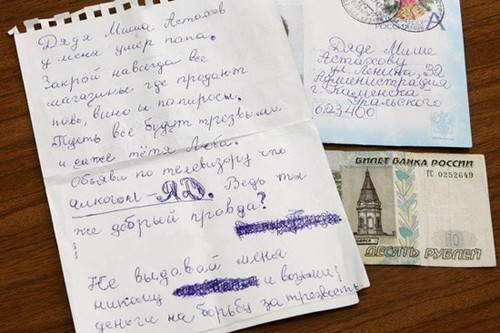 Дядя Миша Астахов
у меня умер папа.
Закрой навсегда все
магазины где продают
пиво, вино и папиросы.
Пусть все будут трезвыми
и даже тётя Люба.
Объяви по телевизору что
алкоголь - ЯД. Ведь ты
же добрый правда?
Не выдавай меня
никому и возьми
деньги на борьбу за трезвость
РОССИЯ
А
Дяде Мише
Астахову
ул Ленина, 32
Администрация
г Каменска
Уральского
623400
БИЛЕТ БАНКА РОССИИ
ГС 0252649
10
ДЕСЯТЬ РУБЛЕЙ